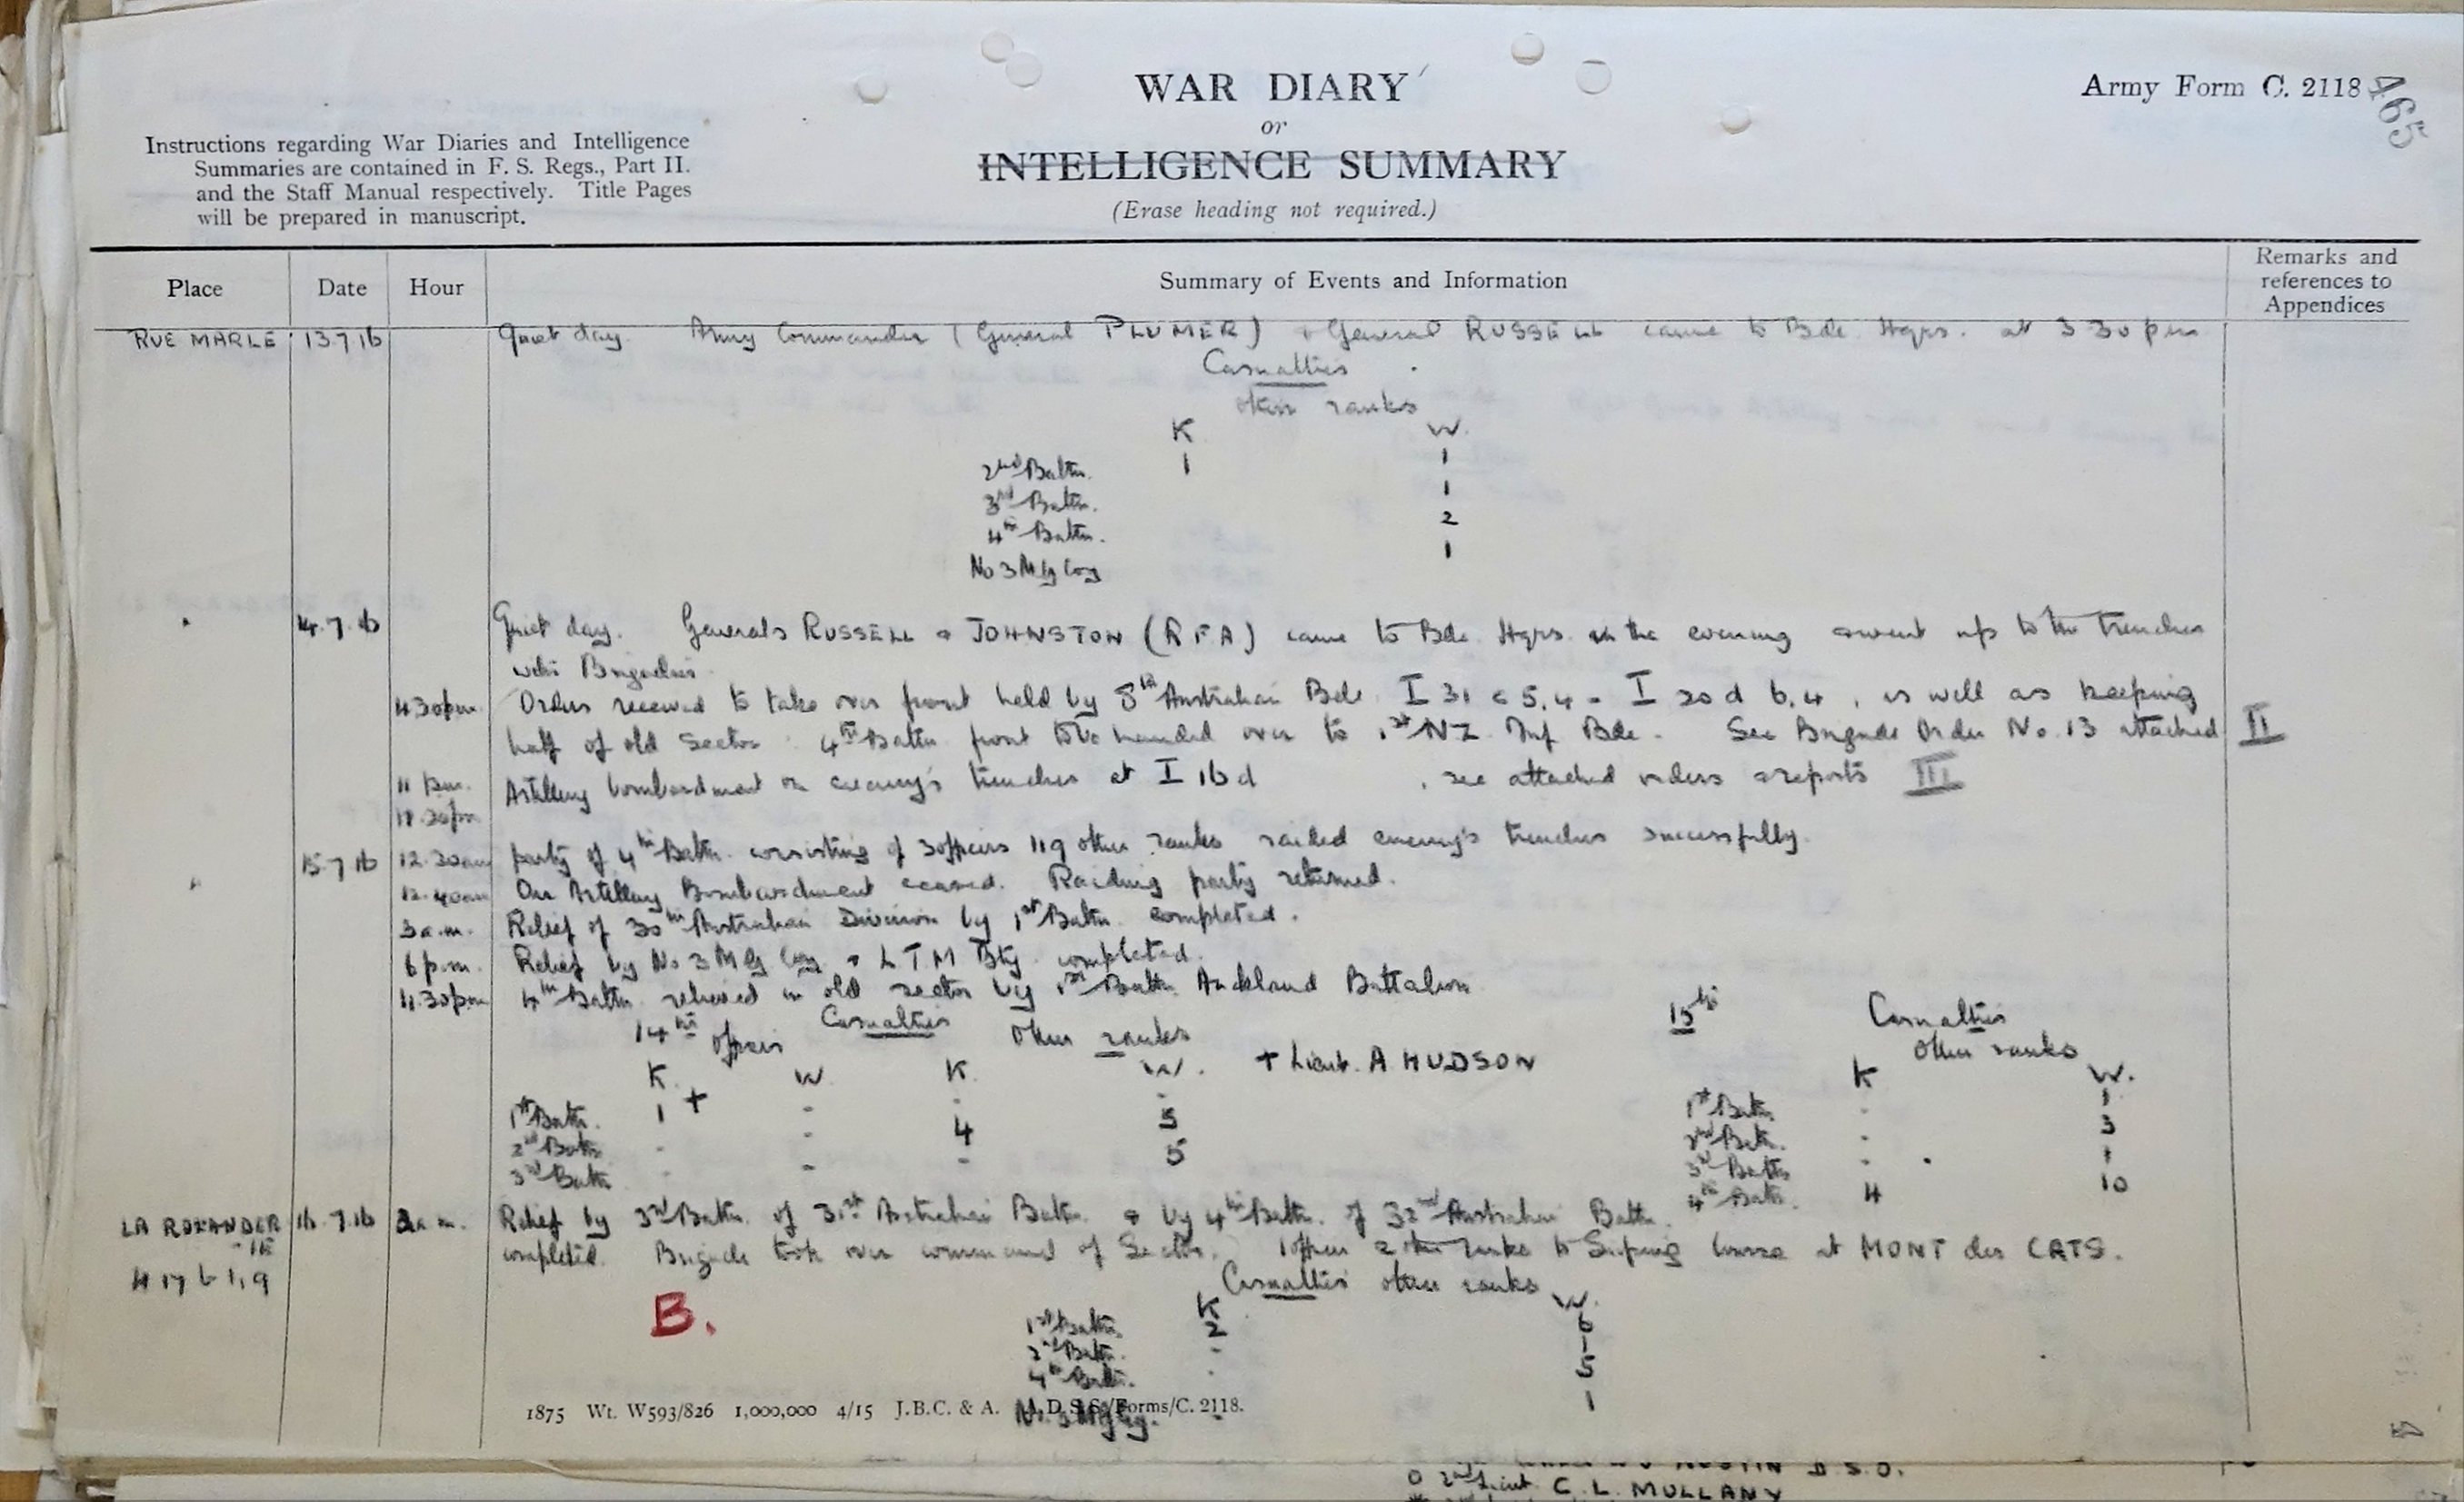 465
WAR DIARY
or
INTELLIGENCE SUMMARY
(Erase heading not required.)
Army Form C. 2118
Instructions regarding War Diaries and Intelligence
Summaries are contained in F. S. Regs., Part II.
and the Staff Manual respectively. Title Pages
will be prepared in manuscript.
Place Date Hour Summary of Events and Information Remarks and references to Appendices
RUE MARLE 13.7.16 Quiet day. Army Commander (General PLUMER) + General RUSSELL came to Bde Hqrs. at 3.30 pm
Casualties
other ranks
K W.
2nd Battn. 1 1
3rd Battn. 1
4th Battn. 2
No 3 M G Coy 1
14.7.16 Quiet day. Generals RUSSELL + JOHNSTON (RFA) came to Bde Hqrs in the evening + went up to the trenches
with Brigadier.
4.30pm. Orders received to take over front held by 8th Australian Bde I 31 c 5,4 - I 20 d 6,4, as well as keeping
half of old Sector. 4th Battn front to be handed over to 1st NZ Inf Bde. See Brigade Order No. 13 attached II
11 pm. Artillery bombardment on enemy's trenches at I 16 d , see attached orders + reports III
15.7.16 12.30am party of 4th Battn. consisting of 3 officers 119 other ranks raided enemy's trenches successfully.
12.40am Our Artillery Bombardment ceased. Raiding party returned.
3 a.m. Relief of 30th Australian Division by 1st Battn. completed.
6 p.m. Relief by No 3 M G Coy + L T M Bty. completed.
11.30pm 4th Battn. relieved in old sector by 1st Battn. Auckland Battalion
14th Casualties
Officers Other ranks
K. W. K. W.
+ Lieut. A HUDSON
1st Battn. 1 + - - -
2nd Battn - - 4 3
3rd Battn - - - 5
15th Casualties
Other ranks
K W.
1st Battn. - 1
2nd Battn. - 3
3rd Battn - 1
4th Battn. 4 10
LA ROLANDERIE 16.7.16 2 a.m. Relief by 3rd Battn. of 31st Australian Battn. + by 4th Battn. of 32nd Australian Battn.
H 17 b 1,9 completed. Brigade took over command of Sector. 1 officer 2 other ranks to Sniping Course at MONT des CATS.
Casualties other ranks
K W.
1st Battn. 2 6
2nd Battn. - 1
4th Battn. - 5
No. 3 M G Coy. - 1
B.
1875 Wt. W593/826 1,000,000 4/15 J.B.C. & A. A.D.S.S./Forms/C. 2118.
AUSTIN D.S.O.
O 2nd Lieut. C. L. MULLANY